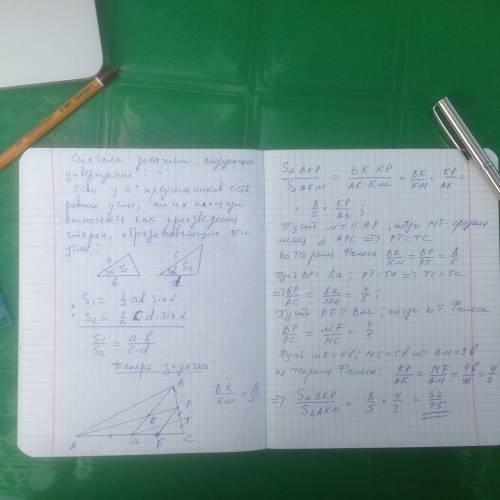 Сначала докажем следующее
утверждение:
Если у 2ˣ треугольников есть
равные углы, то их площади
относятся как произведения
сторон, образовывающих эти
углы.
a S₁ b
c S₂ d
S₁ = 1/2 ab sin α
S₂ = 1/2 c·d·sin α
S₁/S₂ = a·b/c·d
Теперь задача:
BK/KM = 8/5
B
P
K
T
A M F C
S△BKP/S△AKM = BK·KP/AK·KM = BK/KM · KP/AK =
= 8/5 · KP/AK ;
Пусть MT || AP, тогда MT - средняя
линия △ APC ⇒ PT = TC.
по теореме Фалеса BK/KM = BP/PT = 8/5
Пусть BP = 8a ; PT = 5a ⇒ TC = 5a
⇒ BP/PC = 8a/10a = 4/5 ;
Пусть PF || BM ; тогда по т Фалеса
BP/PC = MF/MC = 4/5
Пусть MF = 4b ; MC = 5b ⇒ AM = 9b
по теореме Фалеса: KP/AK = MF/AM = 4b/9b = 4/9
⇒ S△BKP/S△AKM = 8/5 · 4/9 = 32/45